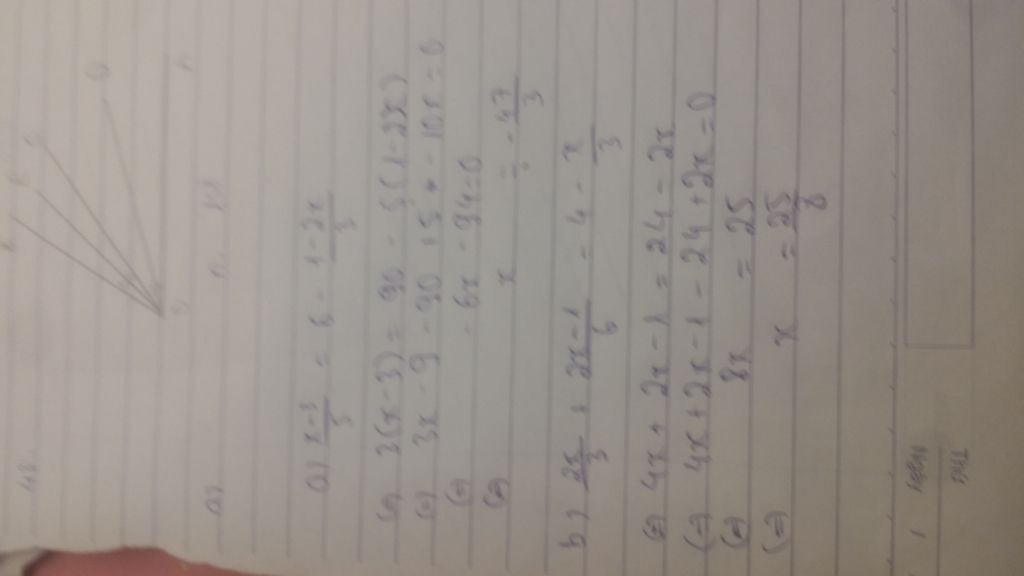 a) \frac{x-3}{5} = 6 - \frac{1-2x}{3}
(=) 3(x-3) = 90 - 5(1-2x)
(=) 3x - 9 - 90 + 5 - 10x = 0
(=) - 6x - 94 = 0
(=) x = - \frac{47}{3}
b) \frac{2x}{3} + \frac{2x-1}{6} = 4 - \frac{x}{3}
(=) 4x + 2x - 1 = 24 - 2x
(=) 4x + 2x - 1 - 24 + 2x = 0
(=) 8x = 25
(=) x = \frac{25}{8}
Ngày
Thứ